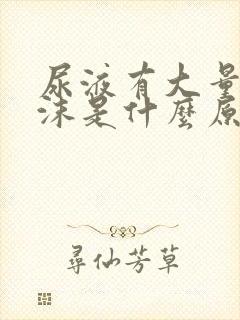 尿液有大量
沫是什麼原
尋仙芳草